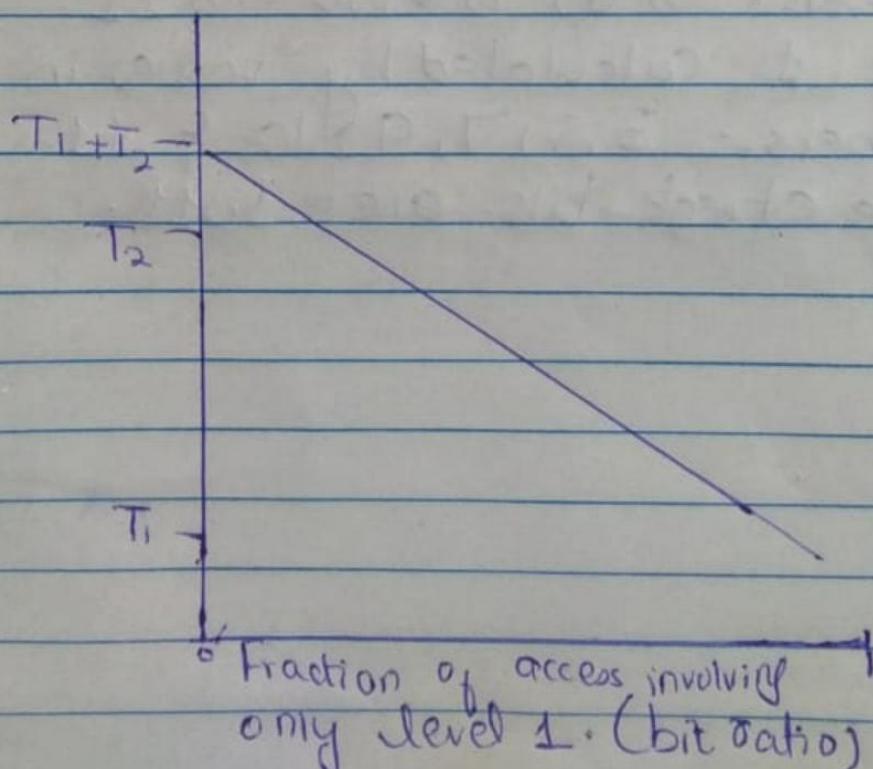 T₁ + T₂
T₂
T₁
0
1
Fraction of access involving
only level 1. (bit ratio)